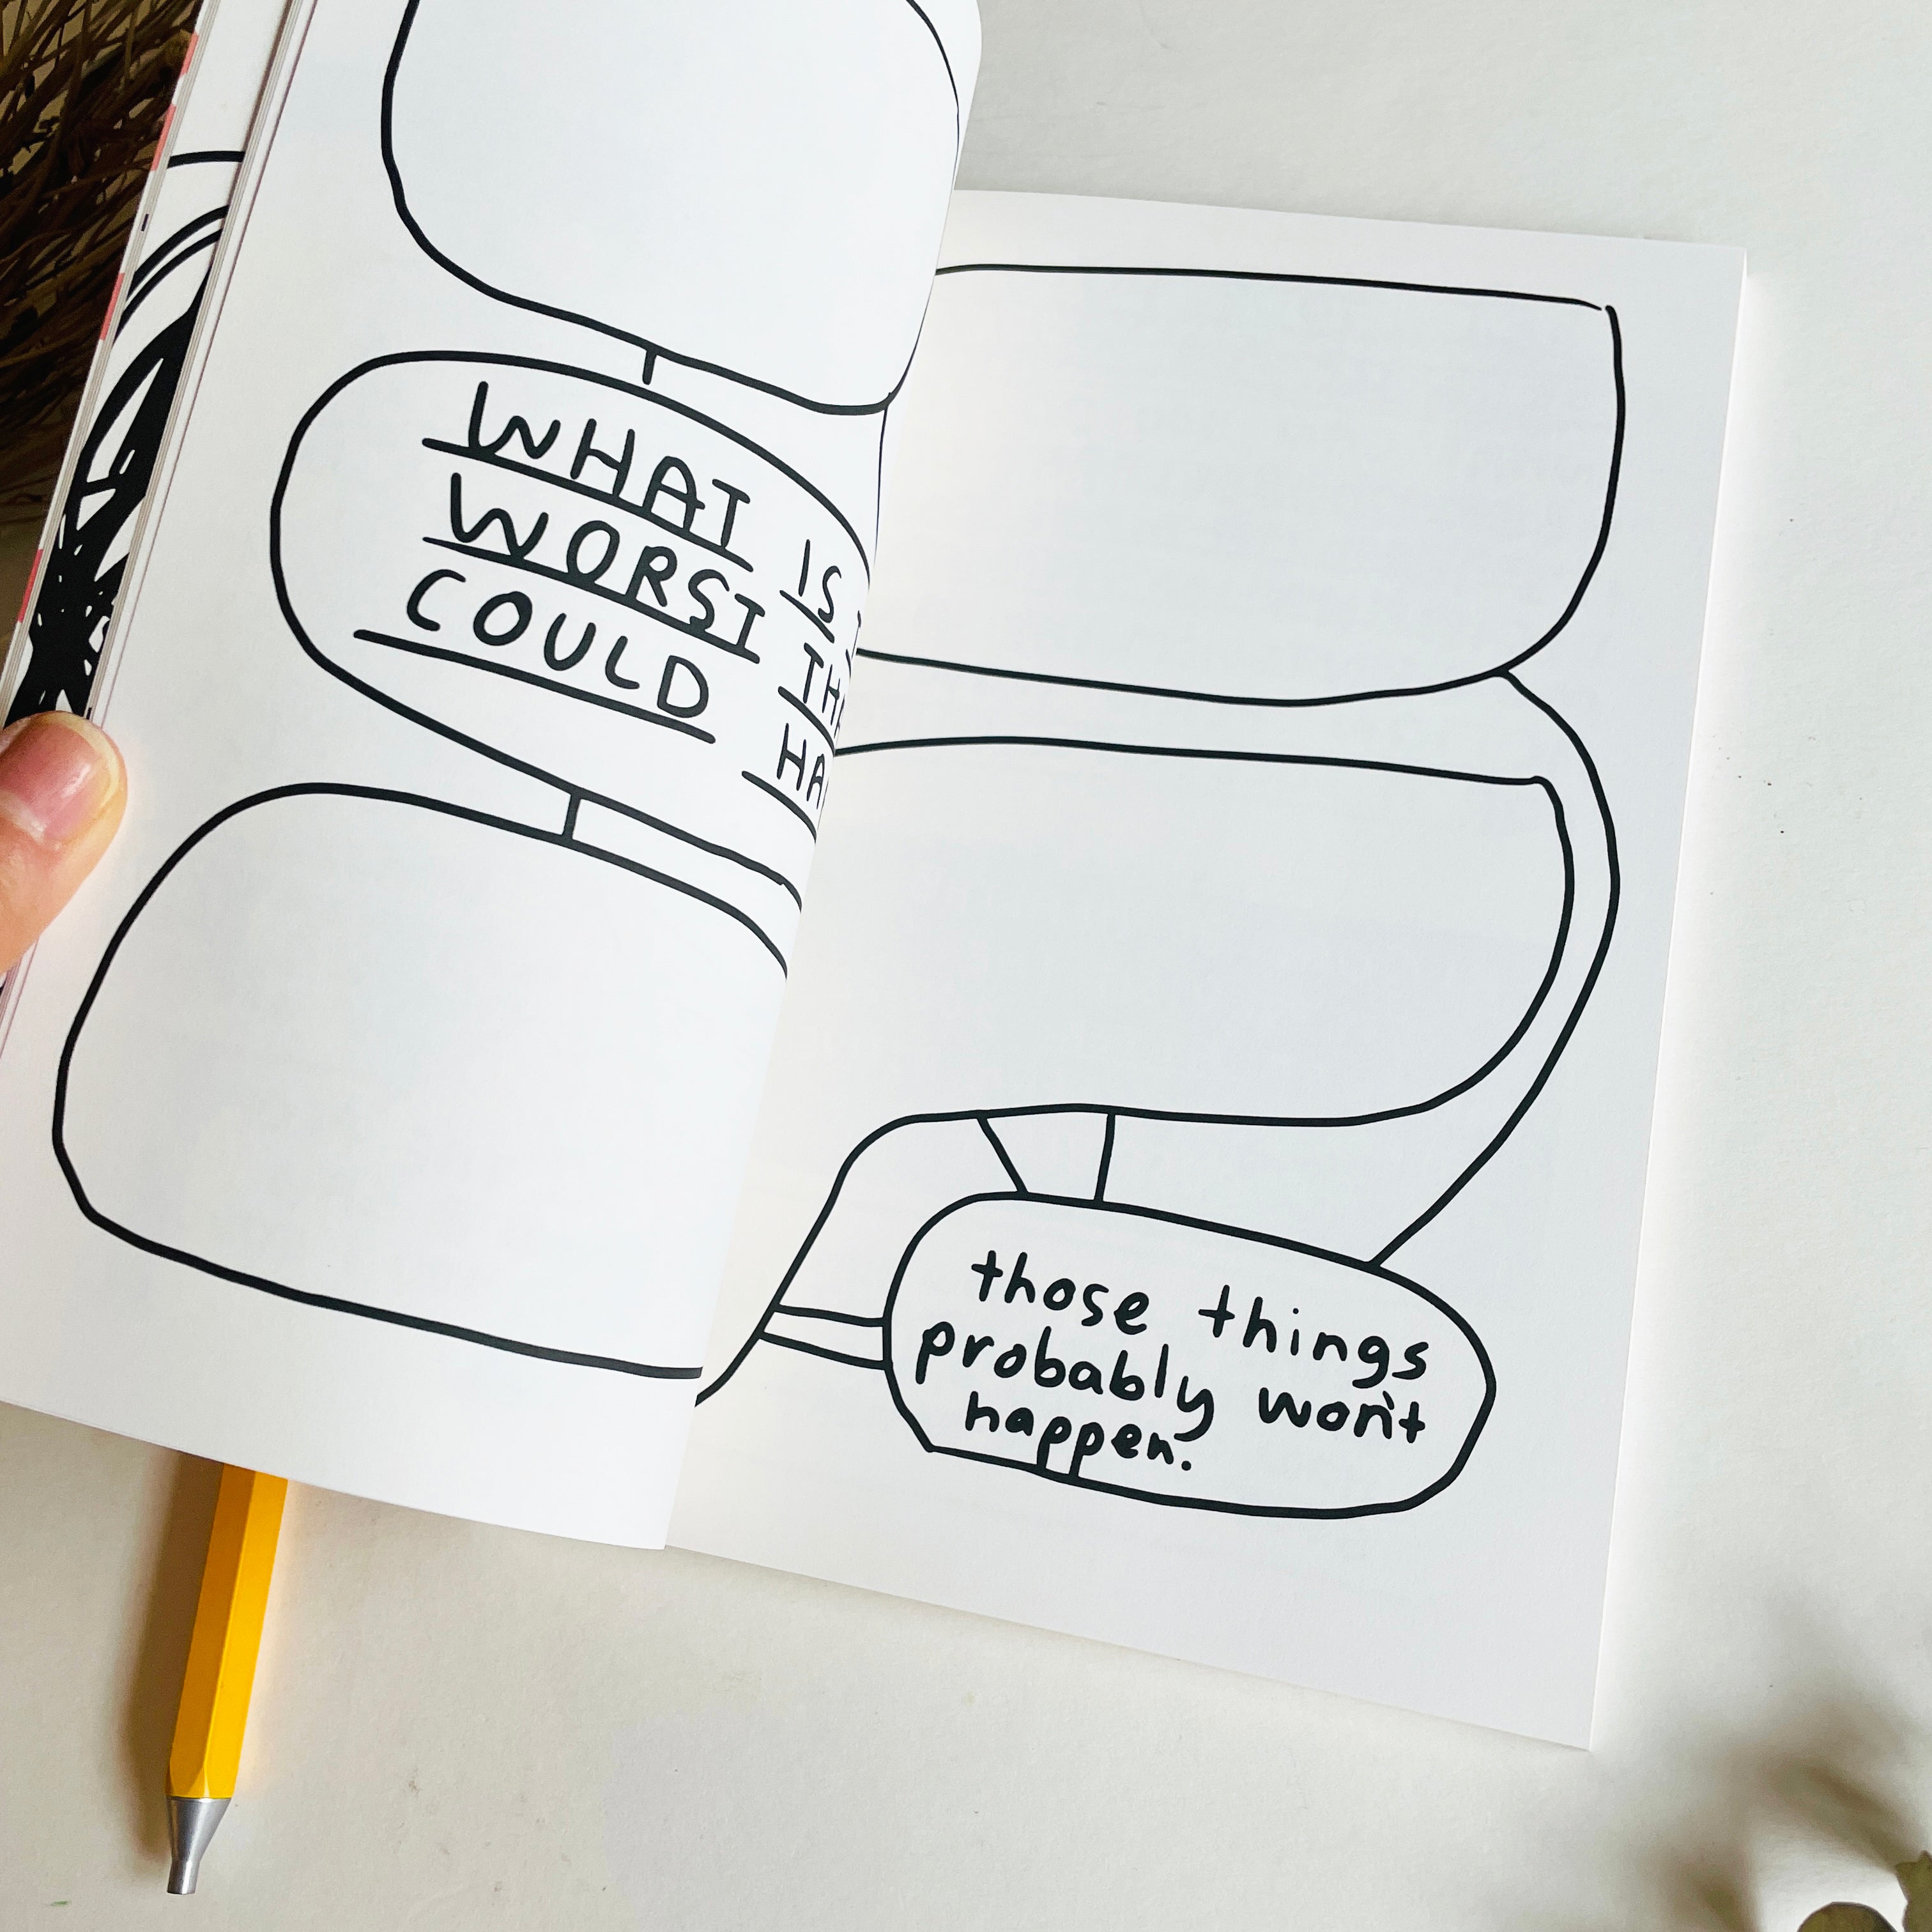 WHAT IS
WORST
COULD
those things
probably won't
happen.